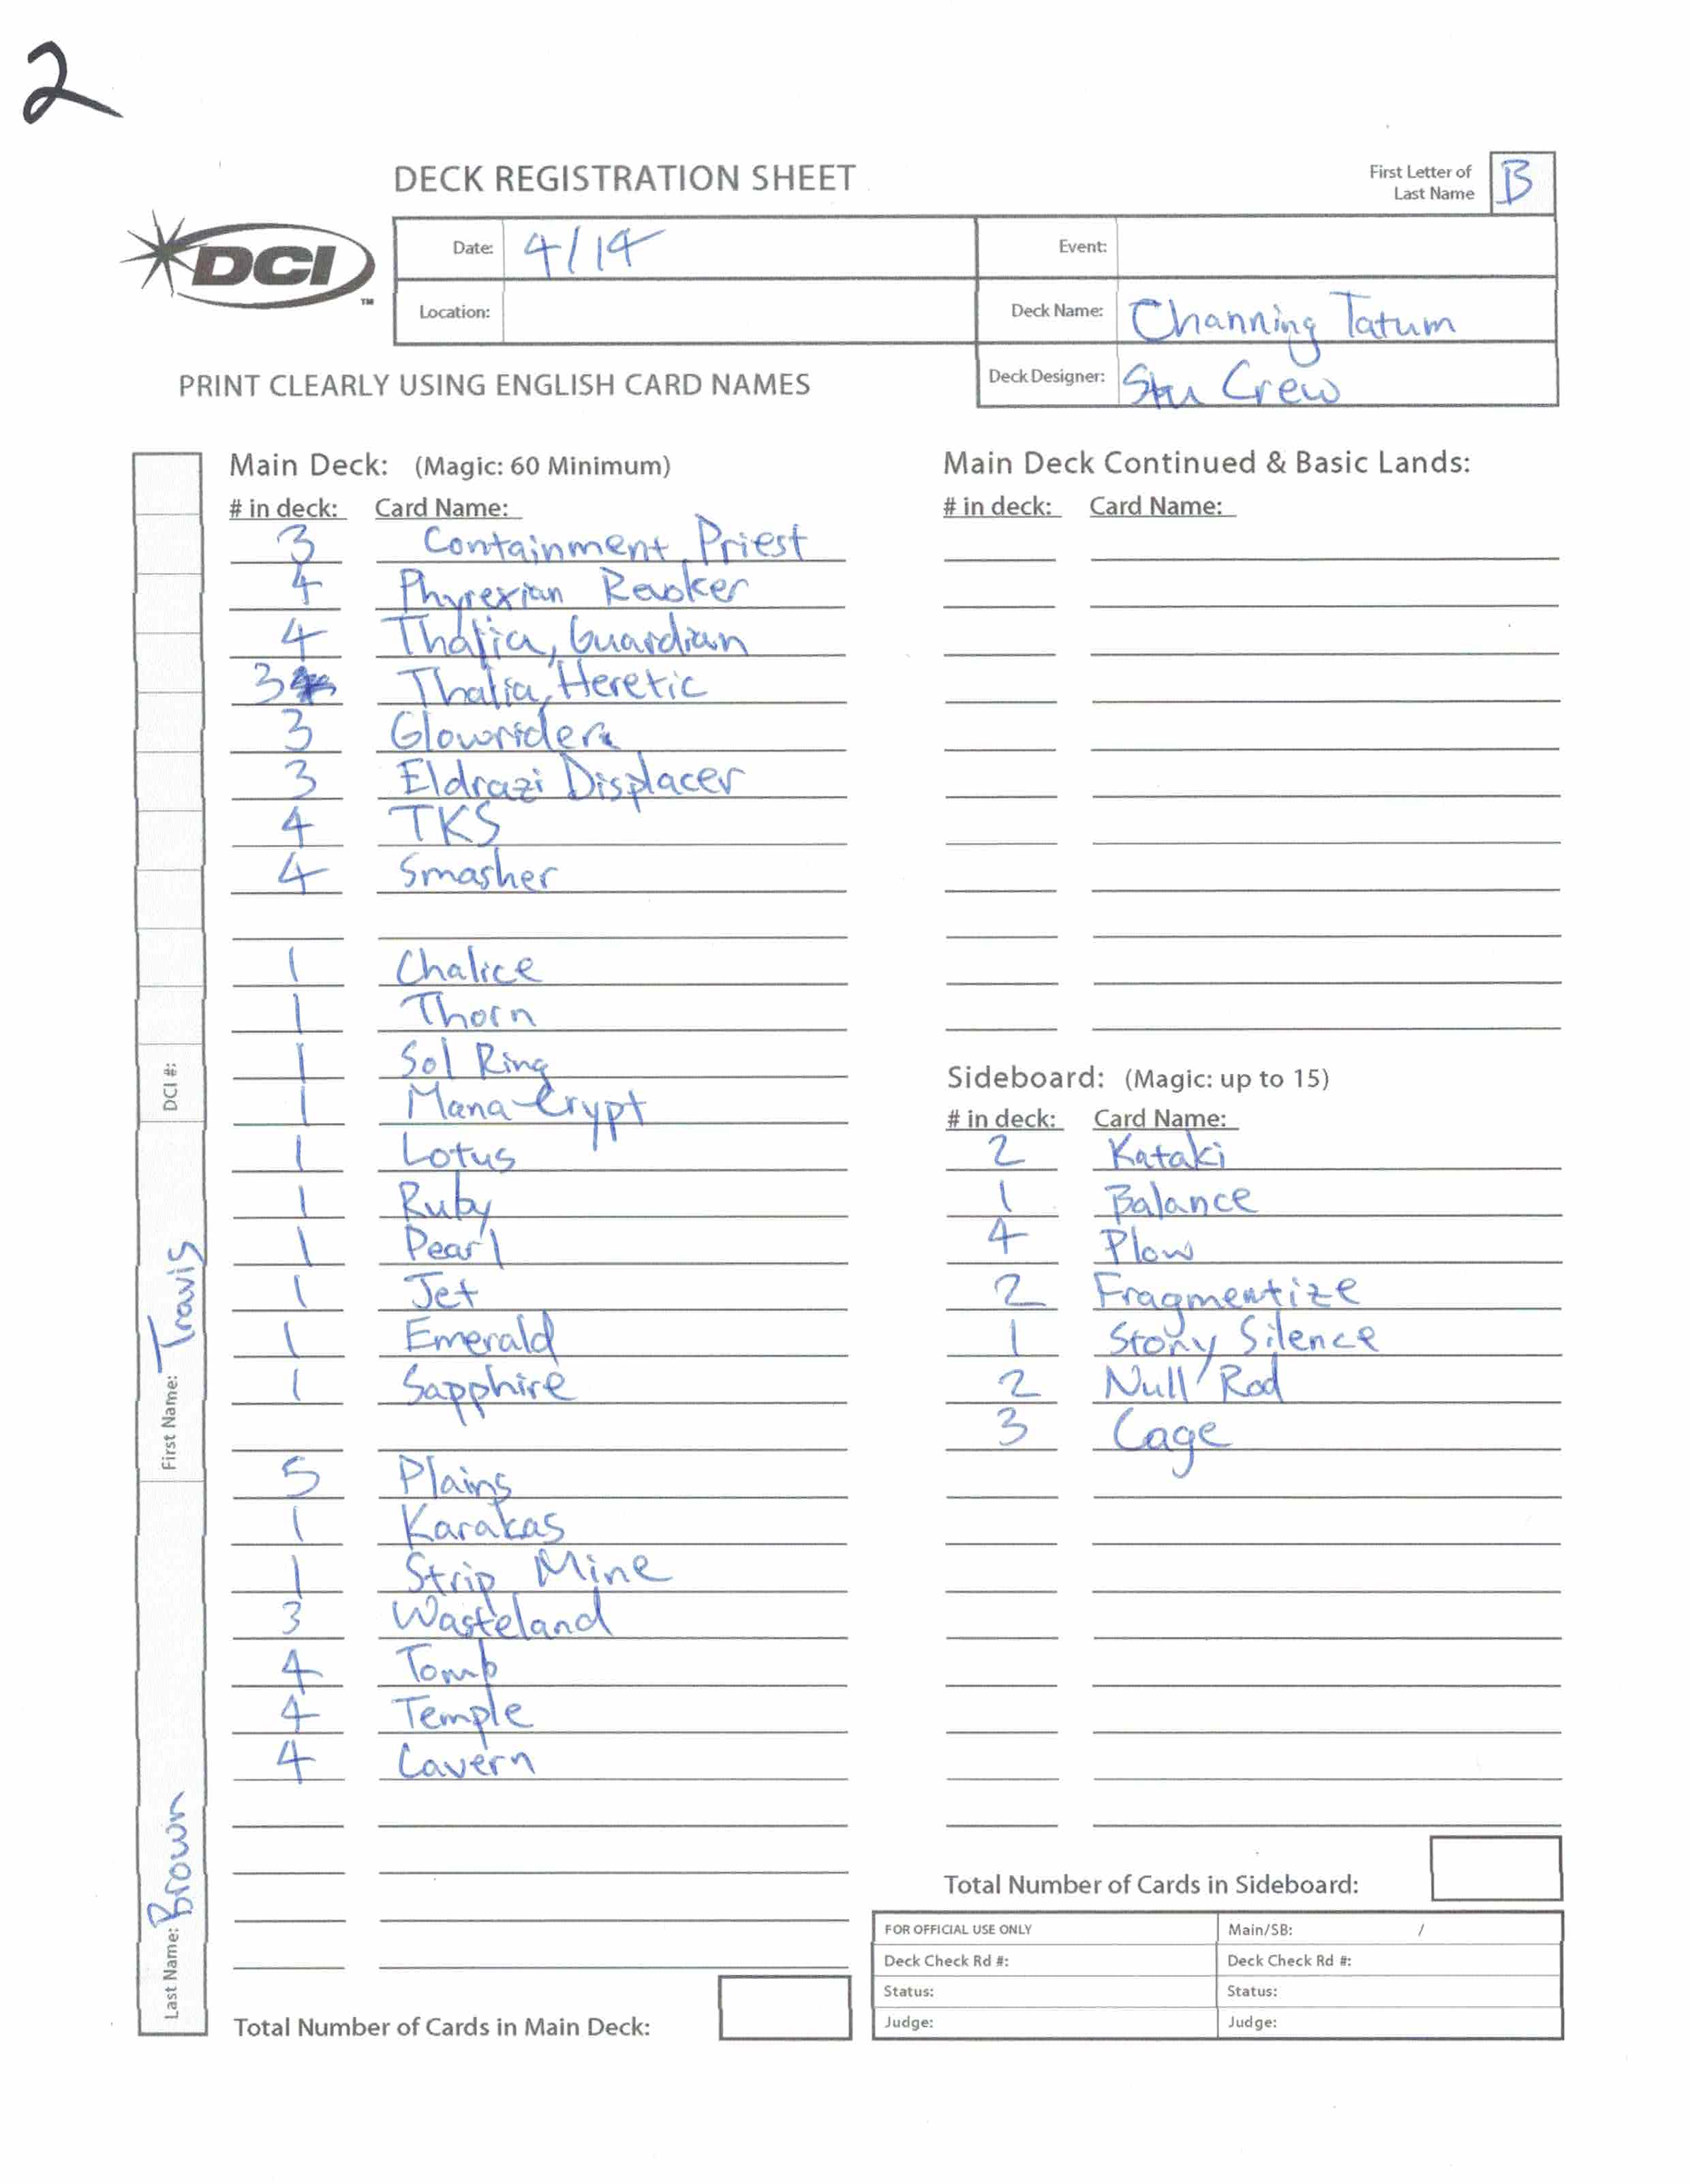 2
DECK REGISTRATION SHEET
First Letter of
Last Name
B
DCI
TM
Date: 4/14
Event:
Location:
Deck Name: Channing Tatum
PRINT CLEARLY USING ENGLISH CARD NAMES
Deck Designer: Stu Crew
Main Deck: (Magic: 60 Minimum)
# in deck: Card Name:
3 Containment Priest
4 Phyrexian Revoker
4 Thalia, Guardian
3 Thalia, Heretic
3 Glowrider
3 Eldrazi Displacer
4 TKS
4 Smasher
1 Chalice
1 Thorn
1 Sol Ring
1 Mana Crypt
1 Lotus
1 Ruby
1 Pearl
1 Jet
1 Emerald
1 Sapphire
5 Plains
1 Karakas
1 Strip Mine
3 Wasteland
4 Tomb
4 Temple
4 Cavern
Total Number of Cards in Main Deck:
Main Deck Continued & Basic Lands:
# in deck: Card Name:
Sideboard: (Magic: up to 15)
# in deck: Card Name:
2 Kataki
1 Balance
4 Plow
2 Fragmentize
1 Stony Silence
2 Null Rod
3 Cage
Total Number of Cards in Sideboard:
FOR OFFICIAL USE ONLY
Main/SB: /
Deck Check Rd #:
Deck Check Rd #:
Status:
Status:
Judge:
Judge:
Last Name: Brown
First Name: Travis
DCI #: